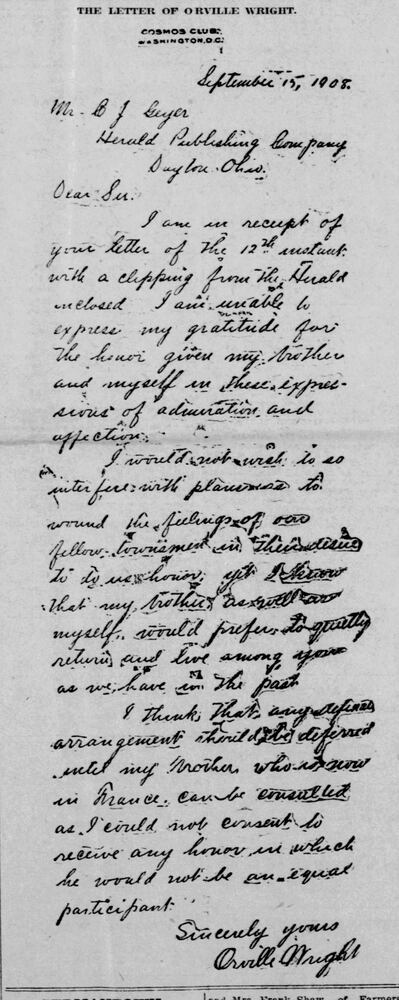 THE LETTER OF ORVILLE WRIGHT.
COSMOS CLUB,
WASHINGTON, D.C.
September 15, 1908.
Mr C J Geyer
Herald Publishing Company
Dayton Ohio.
Dear Sir.
I am in receipt of
your letter of the 12th instant
with a clipping from the Herald
inclosed I am unable to
express my gratitude for
the honor given my brother
and myself in these expres-
sions of admiration and
affection.
I would not wish to so
interfere with plans as to
wound the feelings of our
fellow townsmen in their desire
to do us honor; yet I know
that my brother, as well as
myself, would prefer to quietly
return and live among you
as we have in the past
I think that any definite
arrangement should be deferred
until my brother, who is now
in France, can be consulted
as I could not consent to
receive any honor in which
he would not be an equal
participant
Sincerely yours
Orville Wright
and Mrs. Frank Shaw, of Farmers